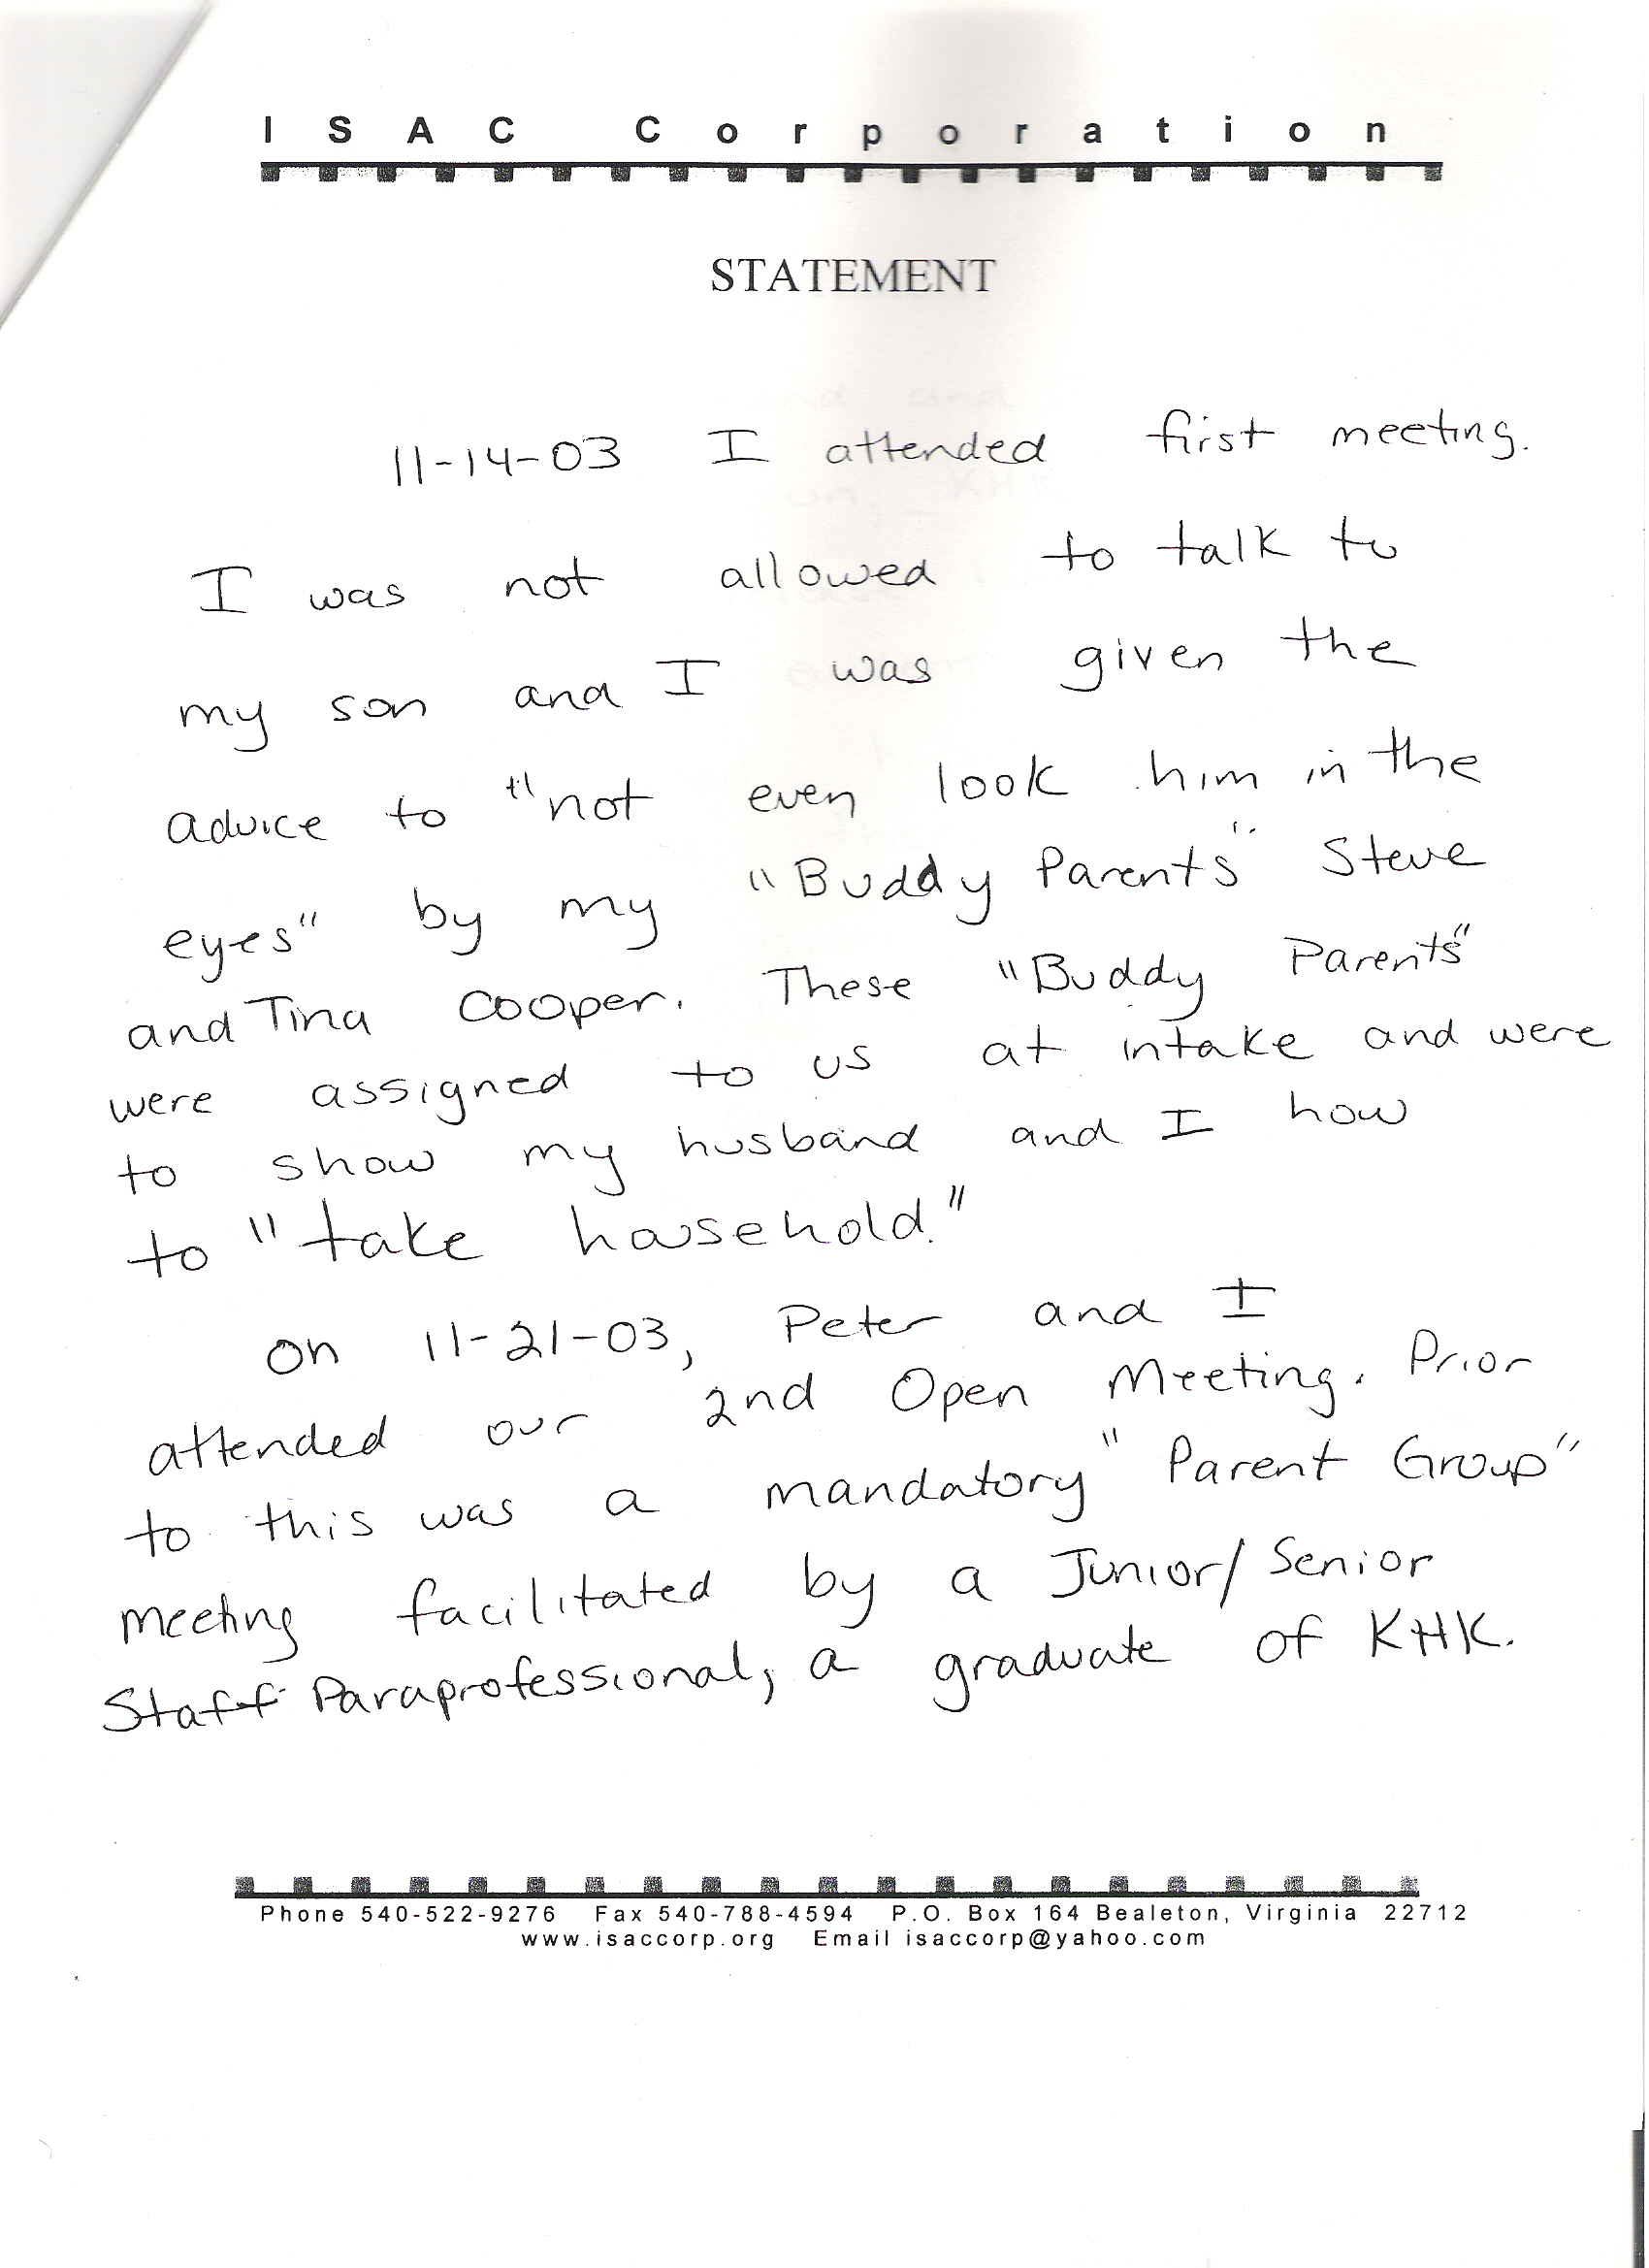 ISAC Corporation
STATEMENT
11-14-03 I attended first meeting.
I was not allowed to talk to
my son and I was given the
advice to "not even look him in the
eyes" by my "Buddy Parents" Steve
and Tina Cooper. These "Buddy Parents"
were assigned to us at intake and were
to show my husband and I how
to "take household."
On 11-21-03, Peter and I
attended our 2nd Open Meeting. Prior
to this was a mandatory "Parent Group"
meeting facilitated by a Junior/Senior
Staff Paraprofessional, a graduate of KHK.
Phone 540-522-9276 Fax 540-788-4594 P.O. Box 164 Bealeton, Virginia 22712
www.isaccorp.org Email isaccorp@yahoo.com